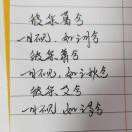 彼采葛兮
一日不见，如三月兮
彼采萧兮
一日不见，如三秋兮
彼采艾兮
一日不见，如三岁兮